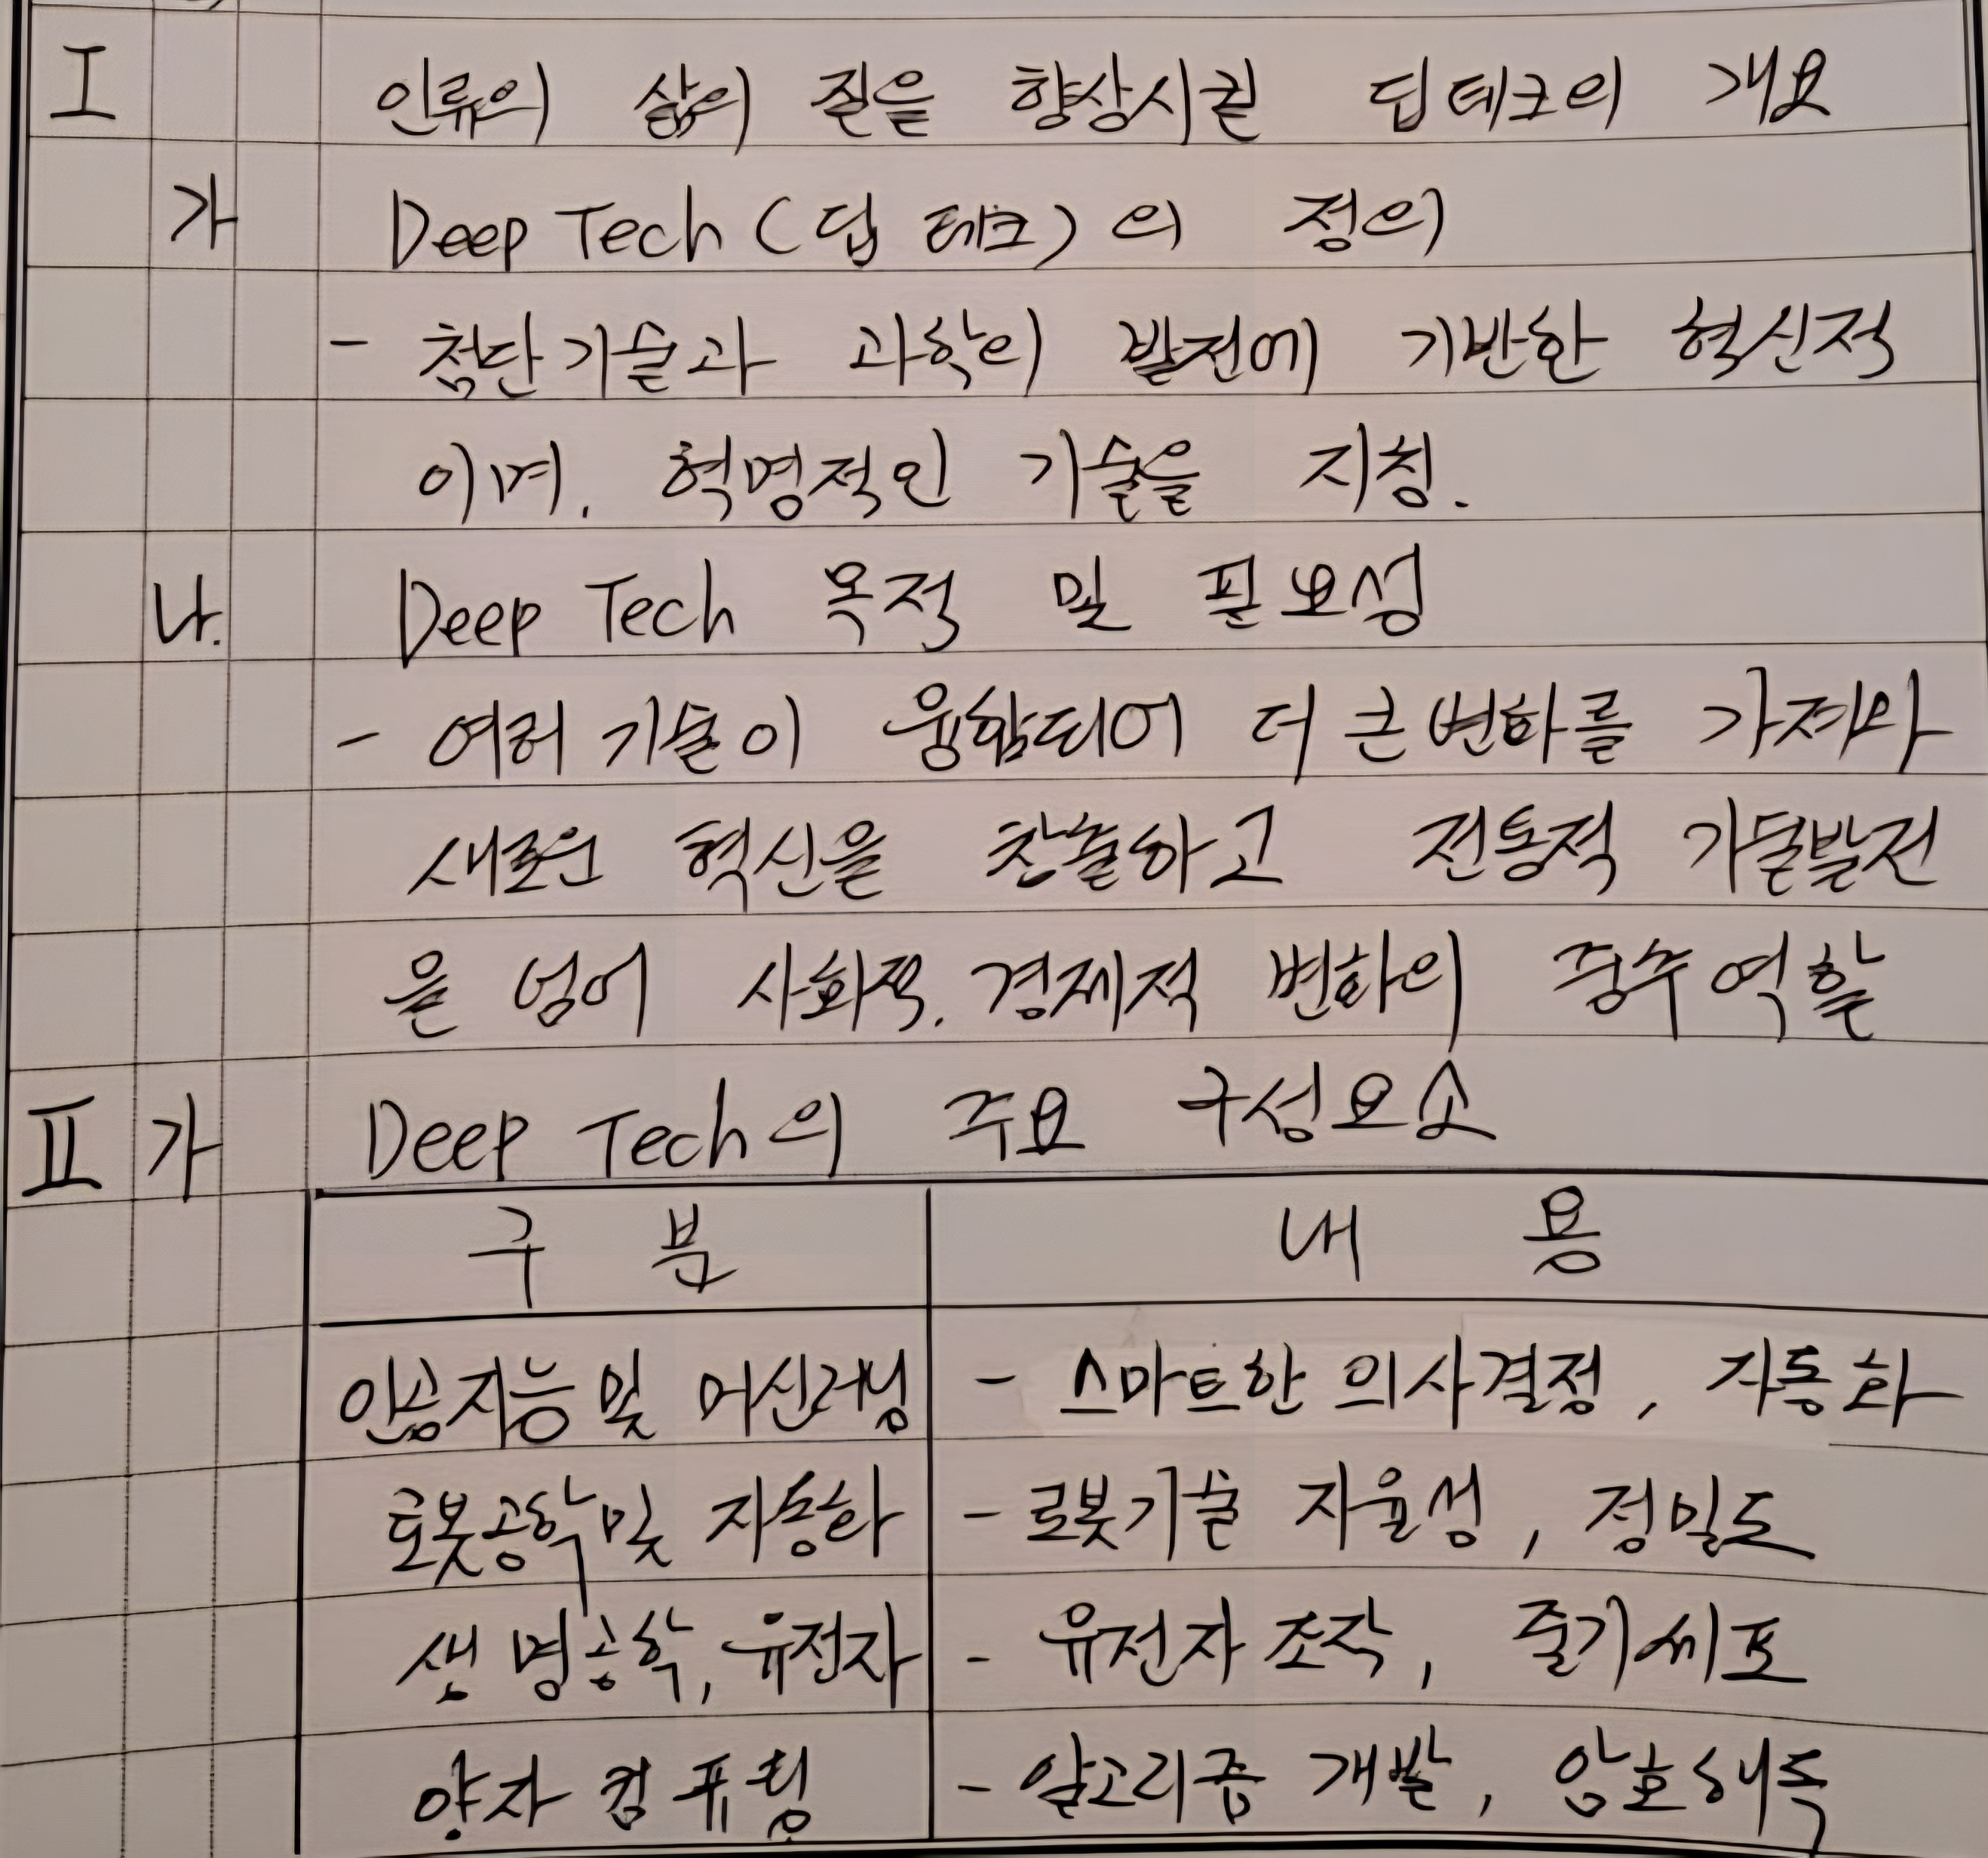 I 인류의 삶의 질을 향상시킬 딥테크의 개요
가 Deep Tech(딥 테크)의 정의
- 첨단기술과 과학의 발전에 기반한 혁신적
이며, 혁명적인 기술을 지칭.
나. Deep Tech 목적 및 필요성
- 여러 기술이 융합되어 더 큰 변화를 가져와
새로운 혁신을 창출하고 전통적 기술발전
을 넘어 사회적, 경제적 변화의 중추 역할
II 가 Deep Tech의 주요 구성요소
구 분 내 용
인공지능 및 머신러닝 - 스마트한 의사결정, 자동화
로봇공학 및 자동화 - 로봇기술 자율성, 정밀도
생명공학, 유전자 - 유전자 조작, 줄기세포
양자 컴퓨팅 - 알고리즘 개발, 암호해독